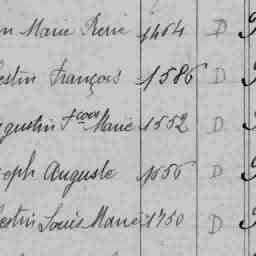 n Marie Pierre 1464 D
estin François 1586 D
ugustin Fçois Marie 1552 D
seph Auguste 1656 D
lestin Louis Marie 1750 D